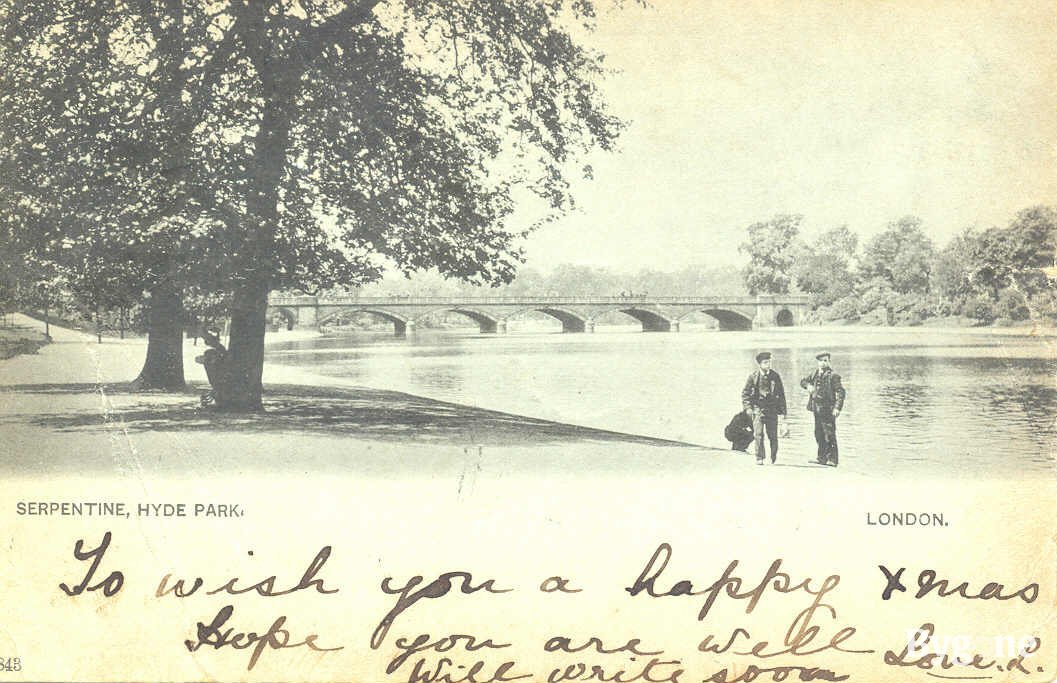 SERPENTINE, HYDE PARK.
LONDON.
To wish you a happy Xmas
Hope you are well Love. L.
Will write soon
843
Bygone